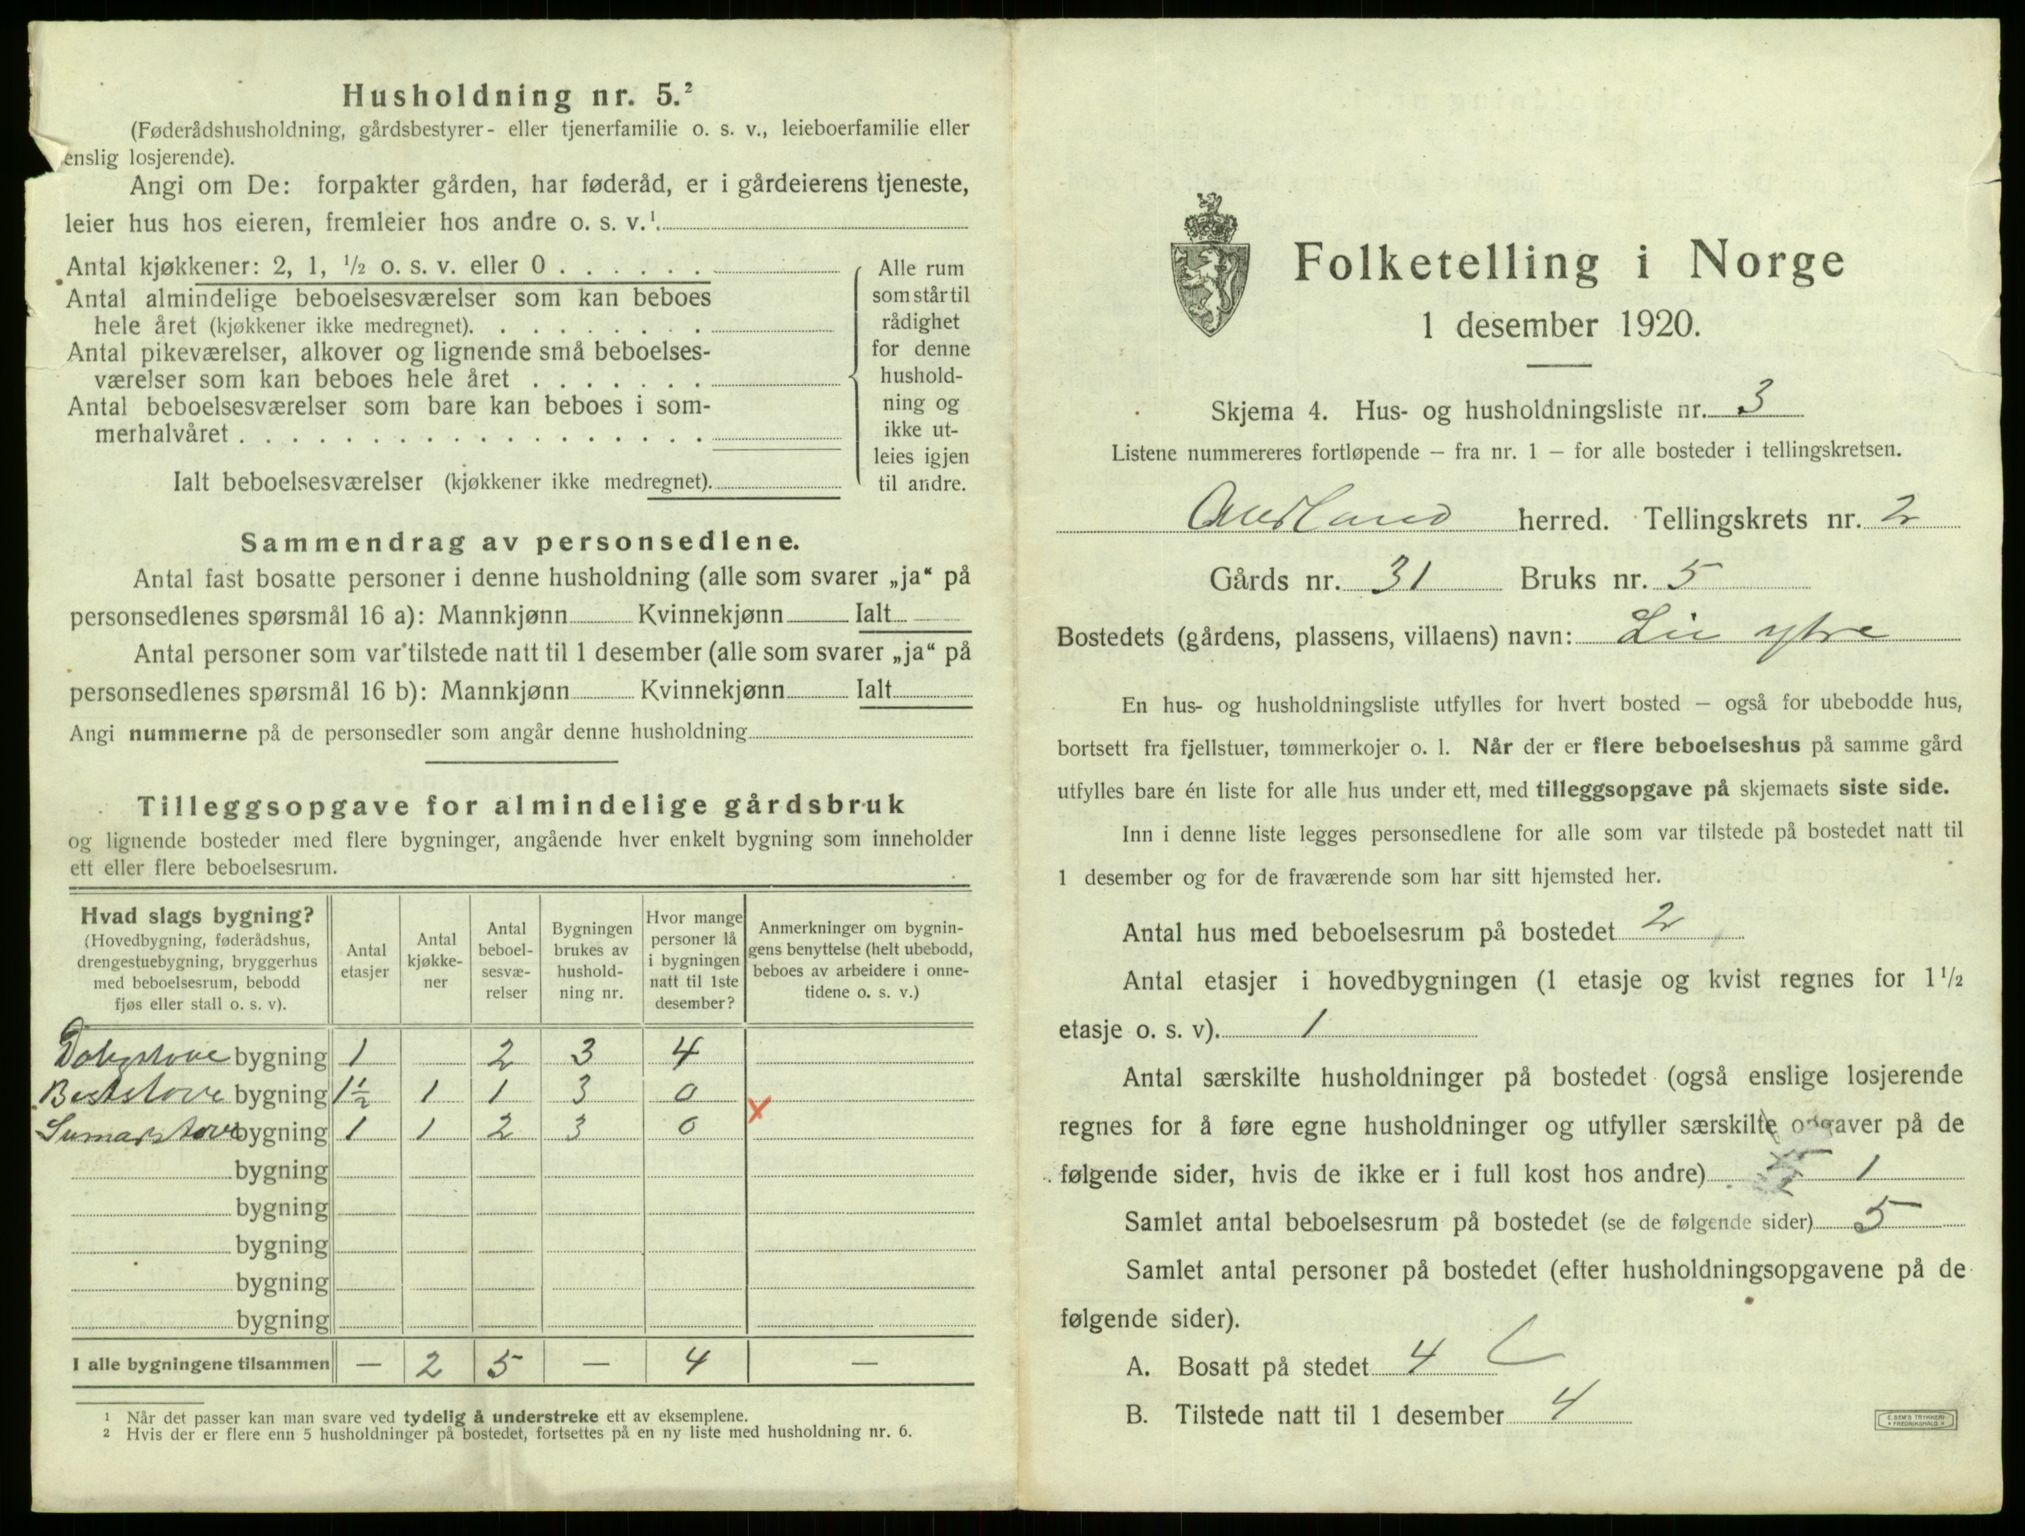 Husholdning nr. 5.²
(Føderådshusholdning, gårdsbestyrer- eller tjenerfamilie o. s. v., leieboerfamilie eller
enslig losjerende).
Angi om De: forpakter gården, har føderåd, er i gårdeierens tjeneste,
leier hus hos eieren, fremleier hos andre o. s. v.¹
Antal kjøkkener: 2, 1, ½ o. s. v. eller 0
Antal almindelige beboelsesværelser som kan beboes
hele året (kjøkkener ikke medregnet).
Antal pikeværelser, alkover og lignende små beboelses-
værelser som kan beboes hele året
Antal beboelsesværelser som bare kan beboes i som-
merhalvåret
Ialt beboelsesværelser (kjøkkener ikke medregnet).
Alle rum
som står til
rådighet
for denne
hushold-
ning og
ikke ut-
leies igjen
til andre.
Sammendrag av personsedlene.
Antal fast bosatte personer i denne husholdning (alle som svarer „ja“ på
personsedlenes spørsmål 16 a): Mannkjønn Kvinnekjønn Ialt
Antal personer som var tilstede natt til 1 desember (alle som svarer „ja“ på
personsedlenes spørsmål 16 b): Mannkjønn Kvinnekjønn Ialt
Angi nummerne på de personsedler som angår denne husholdning
Tilleggsopgave for almindelige gårdsbruk
og lignende bosteder med flere bygninger, angående hver enkelt bygning som inneholder
ett eller flere beboelsesrum.
Hvad slags bygning?
(Hovedbygning, føderådshus,
drengestuebygning, bryggerhus
med beboelsesrum, bebodd
fjøs eller stall o. s. v).
Antal
etasjer
Antal
kjøkke-
ner
Antal
beboel-
sesvæ-
relser
Bygningen
brukes av
hushold-
ning nr.
Hvor mange
personer lå
i bygningen
natt til 1ste
desember?
Anmerkninger om bygnin-
gens benyttelse (helt ubebodd,
beboes av arbeidere i onne-
tidene o. s. v.)
bygning 1 2 3 4
Beststove bygning 1½ 1 1 3 0 x
Sumarstove bygning 1 1 2 3 0
bygning
bygning
bygning
bygning
bygning
I alle bygningene tilsammen — 2 5 — 4 —
¹ Når det passer kan man svare ved tydelig å understreke ett av eksemplene.
² Hvis der er flere enn 5 husholdninger på bostedet, fortsettes på en ny liste med husholdning nr. 6.
Folketelling i Norge
1 desember 1920.
Skjema 4. Hus- og husholdningsliste nr. 3
Listene nummereres fortløpende – fra nr. 1 – for alle bosteder i tellingskretsen.
Aurland herred. Tellingskrets nr. 2
Gårds nr. 31 Bruks nr. 5
Bostedets (gårdens, plassens, villaens) navn: Li ytre
En hus- og husholdningsliste utfylles for hvert bosted – også for ubebodde hus,
bortsett fra fjellstuer, tømmerkojer o. l. Når der er flere beboelseshus på samme gård
utfylles bare én liste for alle hus under ett, med tilleggsopgave på skjemaets siste side.
Inn i denne liste legges personsedlene for alle som var tilstede på bostedet natt til
1 desember og for de fraværende som har sitt hjemsted her.
Antal hus med beboelsesrum på bostedet 2
Antal etasjer i hovedbygningen (1 etasje og kvist regnes for 1 ½
etasje o. s. v). 1
Antal særskilte husholdninger på bostedet (også enslige losjerende
regnes for å føre egne husholdninger og utfyller særskilte opgaver på de
følgende sider, hvis de ikke er i full kost hos andre) 1
Samlet antal beboelsesrum på bostedet (se de følgende sider) 5
Samlet antal personer på bostedet (efter husholdningsopgavene på de
følgende sider).
A. Bosatt på stedet 4
B. Tilstede natt til 1 desember 4
E. SEM'S TRYKKERI
FREDRIKSHALD